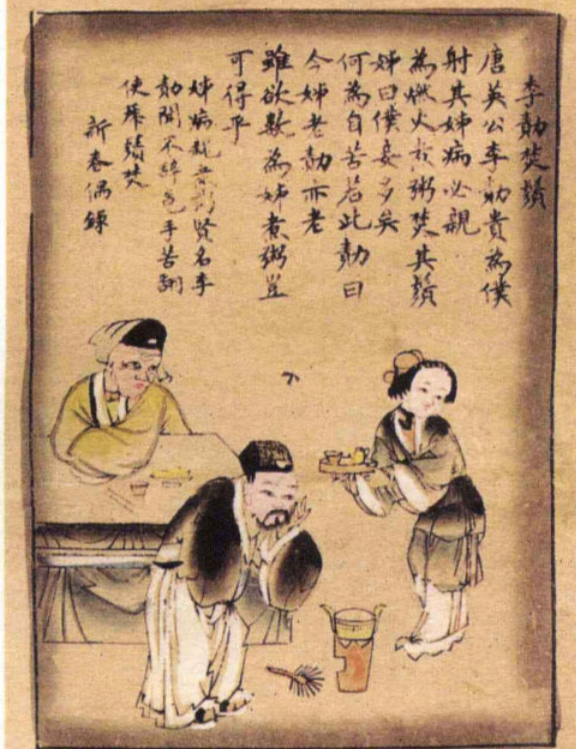 李勣焚鬚
唐英公李勣貴為僕
射其姊病必親
為燃火煮粥焚其鬚
姊曰僕妾多矣
何為自苦若此勣曰
今姊老勣亦老
雖欲數為姊煮粥豈
可得乎
姊病賢名李
勣不手苦
使鬚焚
新春偶錄